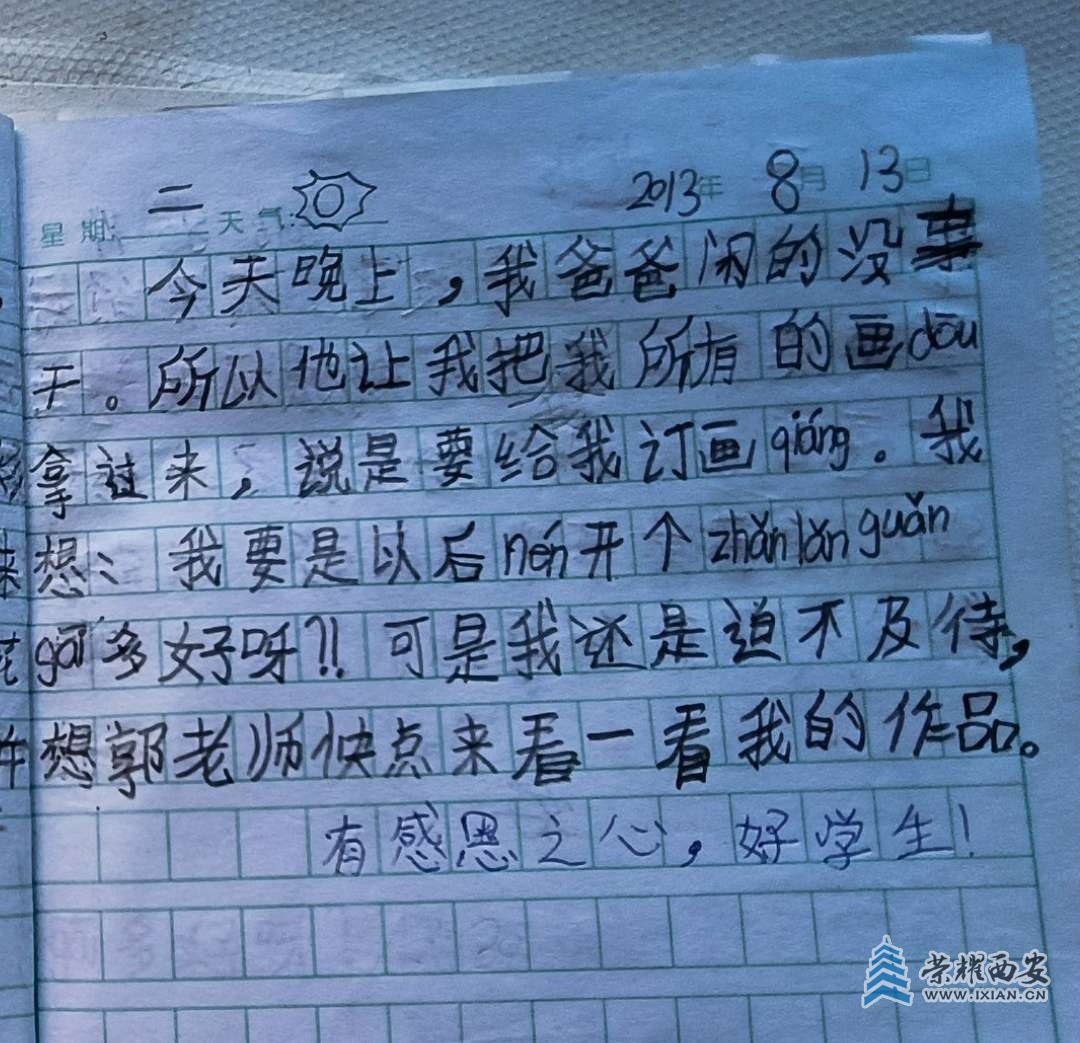 星期:二 天气: 2013年 8月 13日
今天晚上,我爸爸闲的没事
干。所以他让我把我所有的画dōu
拿过来,说是要给我订画qiáng。我
想:我要是以后nén开个zhǎnlǎnguǎn
gāi多好呀?!!可是我还是迫不及待,
想郭老师快点来看一看我的作品。
有感恩之心,好学生!
荣耀西安
WWW.IXIAN.CN